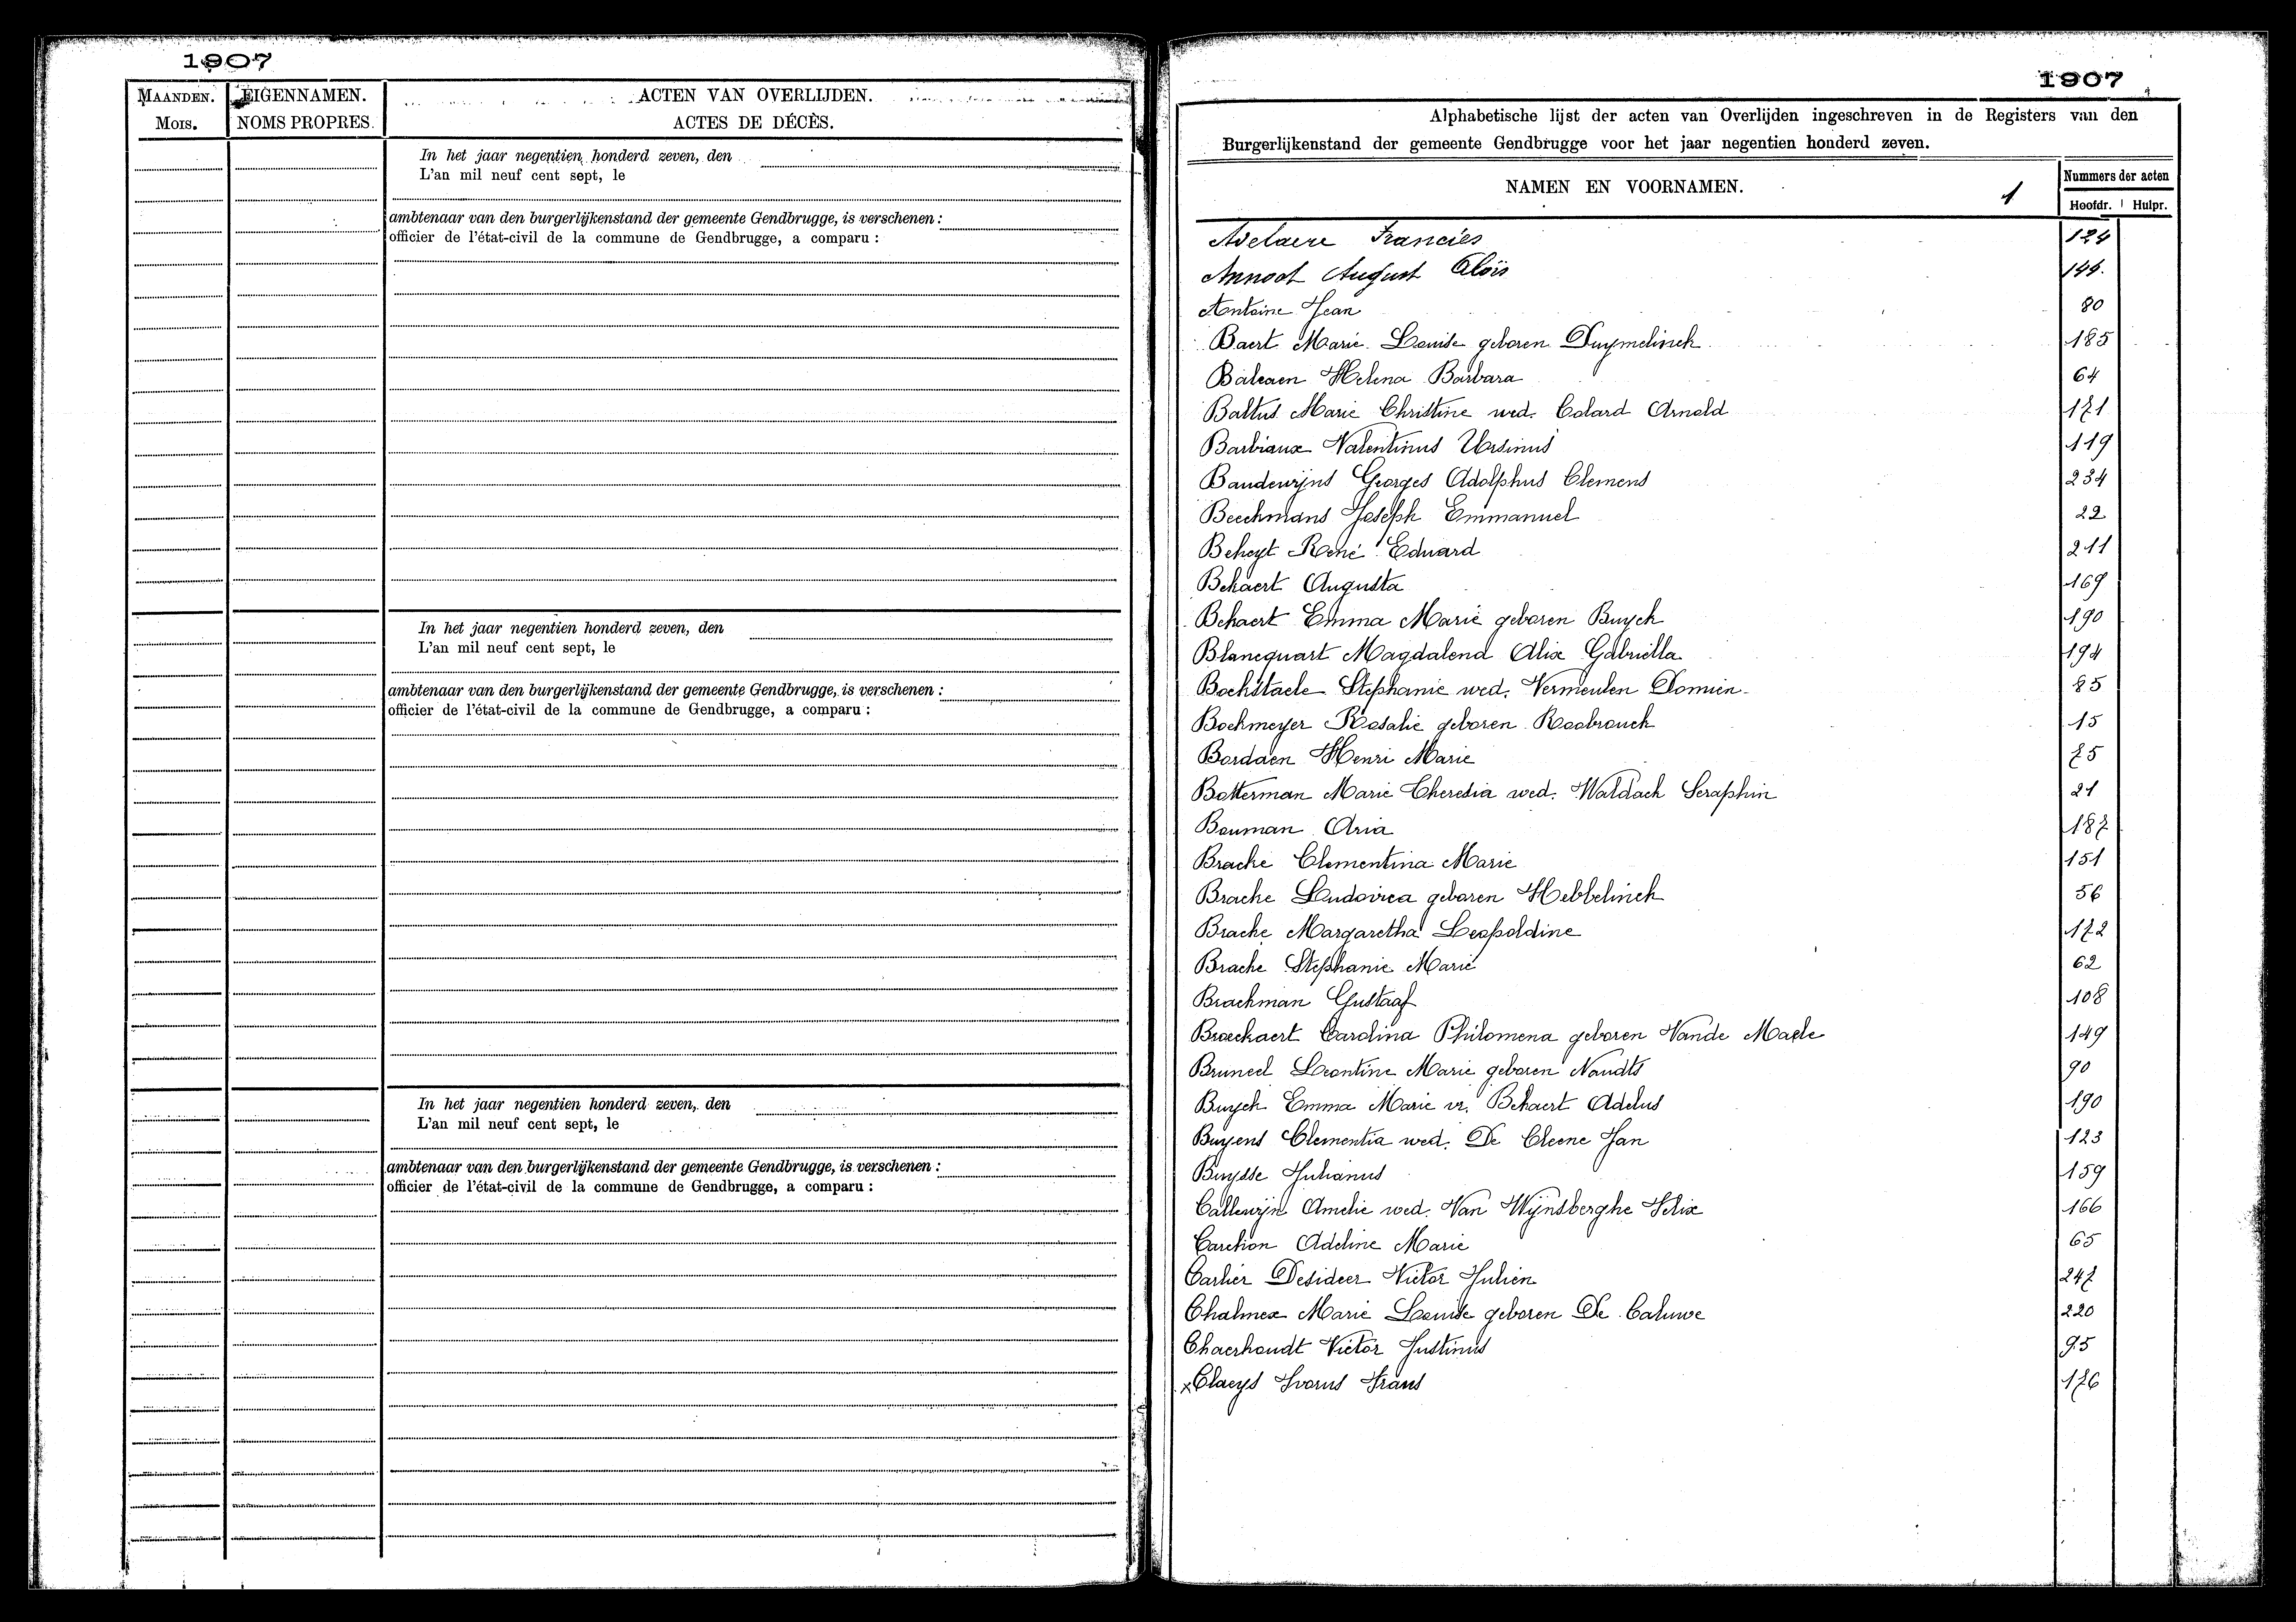 1907
MAANDEN.
Mois.
EIGENNAMEN.
NOMS PROPRES.
ACTEN VAN OVERLIJDEN.
ACTES DE DÉCÈS.
In het jaar negentien honderd zeven, den
L'an mil neuf cent sept, le
ambtenaar van den burgerlijkenstand der gemeente Gendbrugge, is verschenen :
officier de l'état-civil de la commune de Gendbrugge, a comparu :
In het jaar negentien honderd zeven, den
L'an mil neuf cent sept, le
ambtenaar van den burgerlijkenstand der gemeente Gendbrugge, is verschenen :
officier de l'état-civil de la commune de Gendbrugge, a comparu :
In het jaar negentien honderd zeven, den
L'an mil neuf cent sept, le
ambtenaar van den burgerlijkenstand der gemeente Gendbrugge, is verschenen :
officier de l'état-civil de la commune de Gendbrugge, a comparu :
1907
Alphabetische lijst der acten van Overlijden ingeschreven in de Registers van den
Burgerlijkenstand der gemeente Gendbrugge voor het jaar negentien honderd zeven.
NAMEN EN VOORNAMEN. 1
Nummers der acten
Hoofdr. Hulpr.
Adelaere Francies 124
Annoot August Aloïs 144.
Antoine Jean 80
Baert Marie Louise geboren Duymelinck 185
Balcaen Helena Barbara 64
Baltus Marie Christine wed. Colard Arnold 171
Barbiaux Valentinus Ursinus 119
Baudewijns Georges Adolphus Clemens 234
Beeckmans Joseph Emmanuel 22
Beheyt René Eduard 211
Bekaert Augusta 169
Bekaert Emma Marie geboren Buyck 190
Blancquart Magdalena Alix Gabriella 194
Bockstaele Stephanie wed. Vermeulen Domien 85
Boekmeyer Rosalie geboren Roobrouck 15
Bordaen Henri Marie 75
Botterman Marie Theresia wed. Waldack Seraphin 21
Bouman Aria 187
Bracke Clementina Marie 151
Bracke Ludovica geboren Hebbelinck 56
Bracke Margaretha Leopoldine 172
Bracke Stephanie Marie 62
Brackman Gustaaf 108
Broeckaert Carolina Philomena geboren Vande Maele 149
Bruneel Leontine Marie geboren Naudts 90
Buyck Emma Marie vr. Bekaert Adelus 190
Buyens Clementia wed. De Cleene Jan 123
Buysse Julianus 159
Callewijn Amelie wed. Van Wijnsberghe Felix 166
Carétion Adeline Marie 65
Carlier Desideer Victor Julien 247
Chalmex Marie Louise geboren De Caluwe 220
Chaerhoudt Victor Justinus 95
x Claeys Ivorus Frans 176